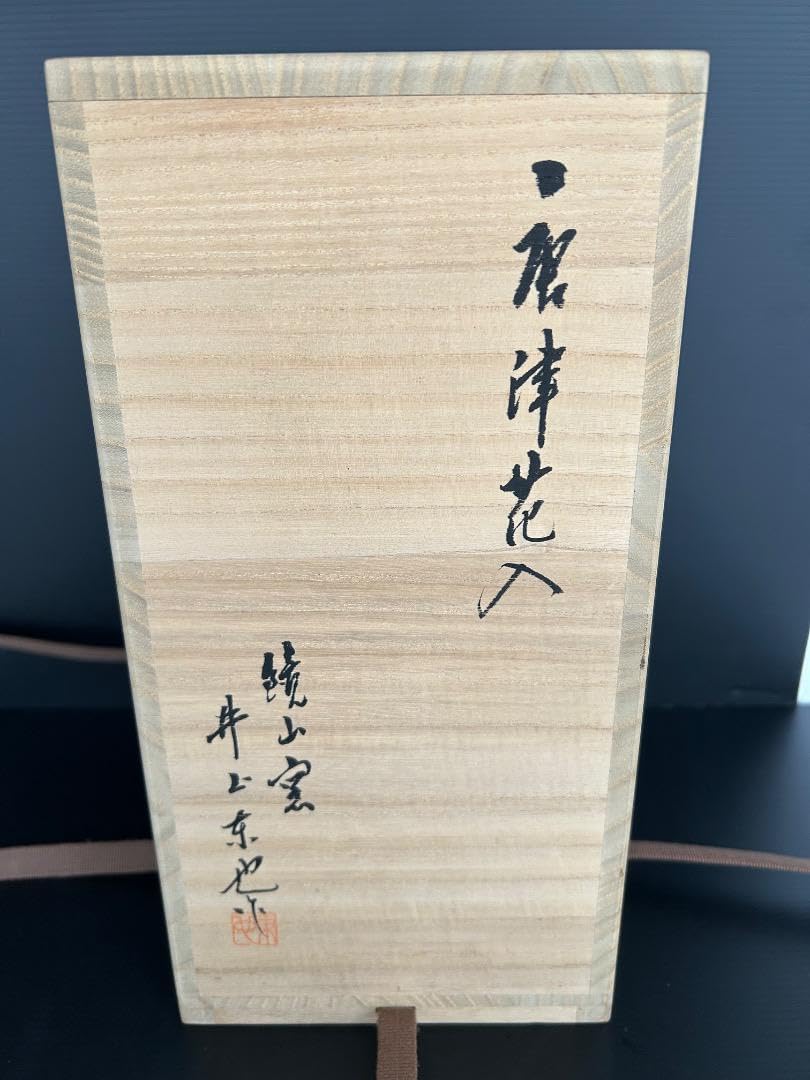 唐津花入
鏡山窯
井上東也作